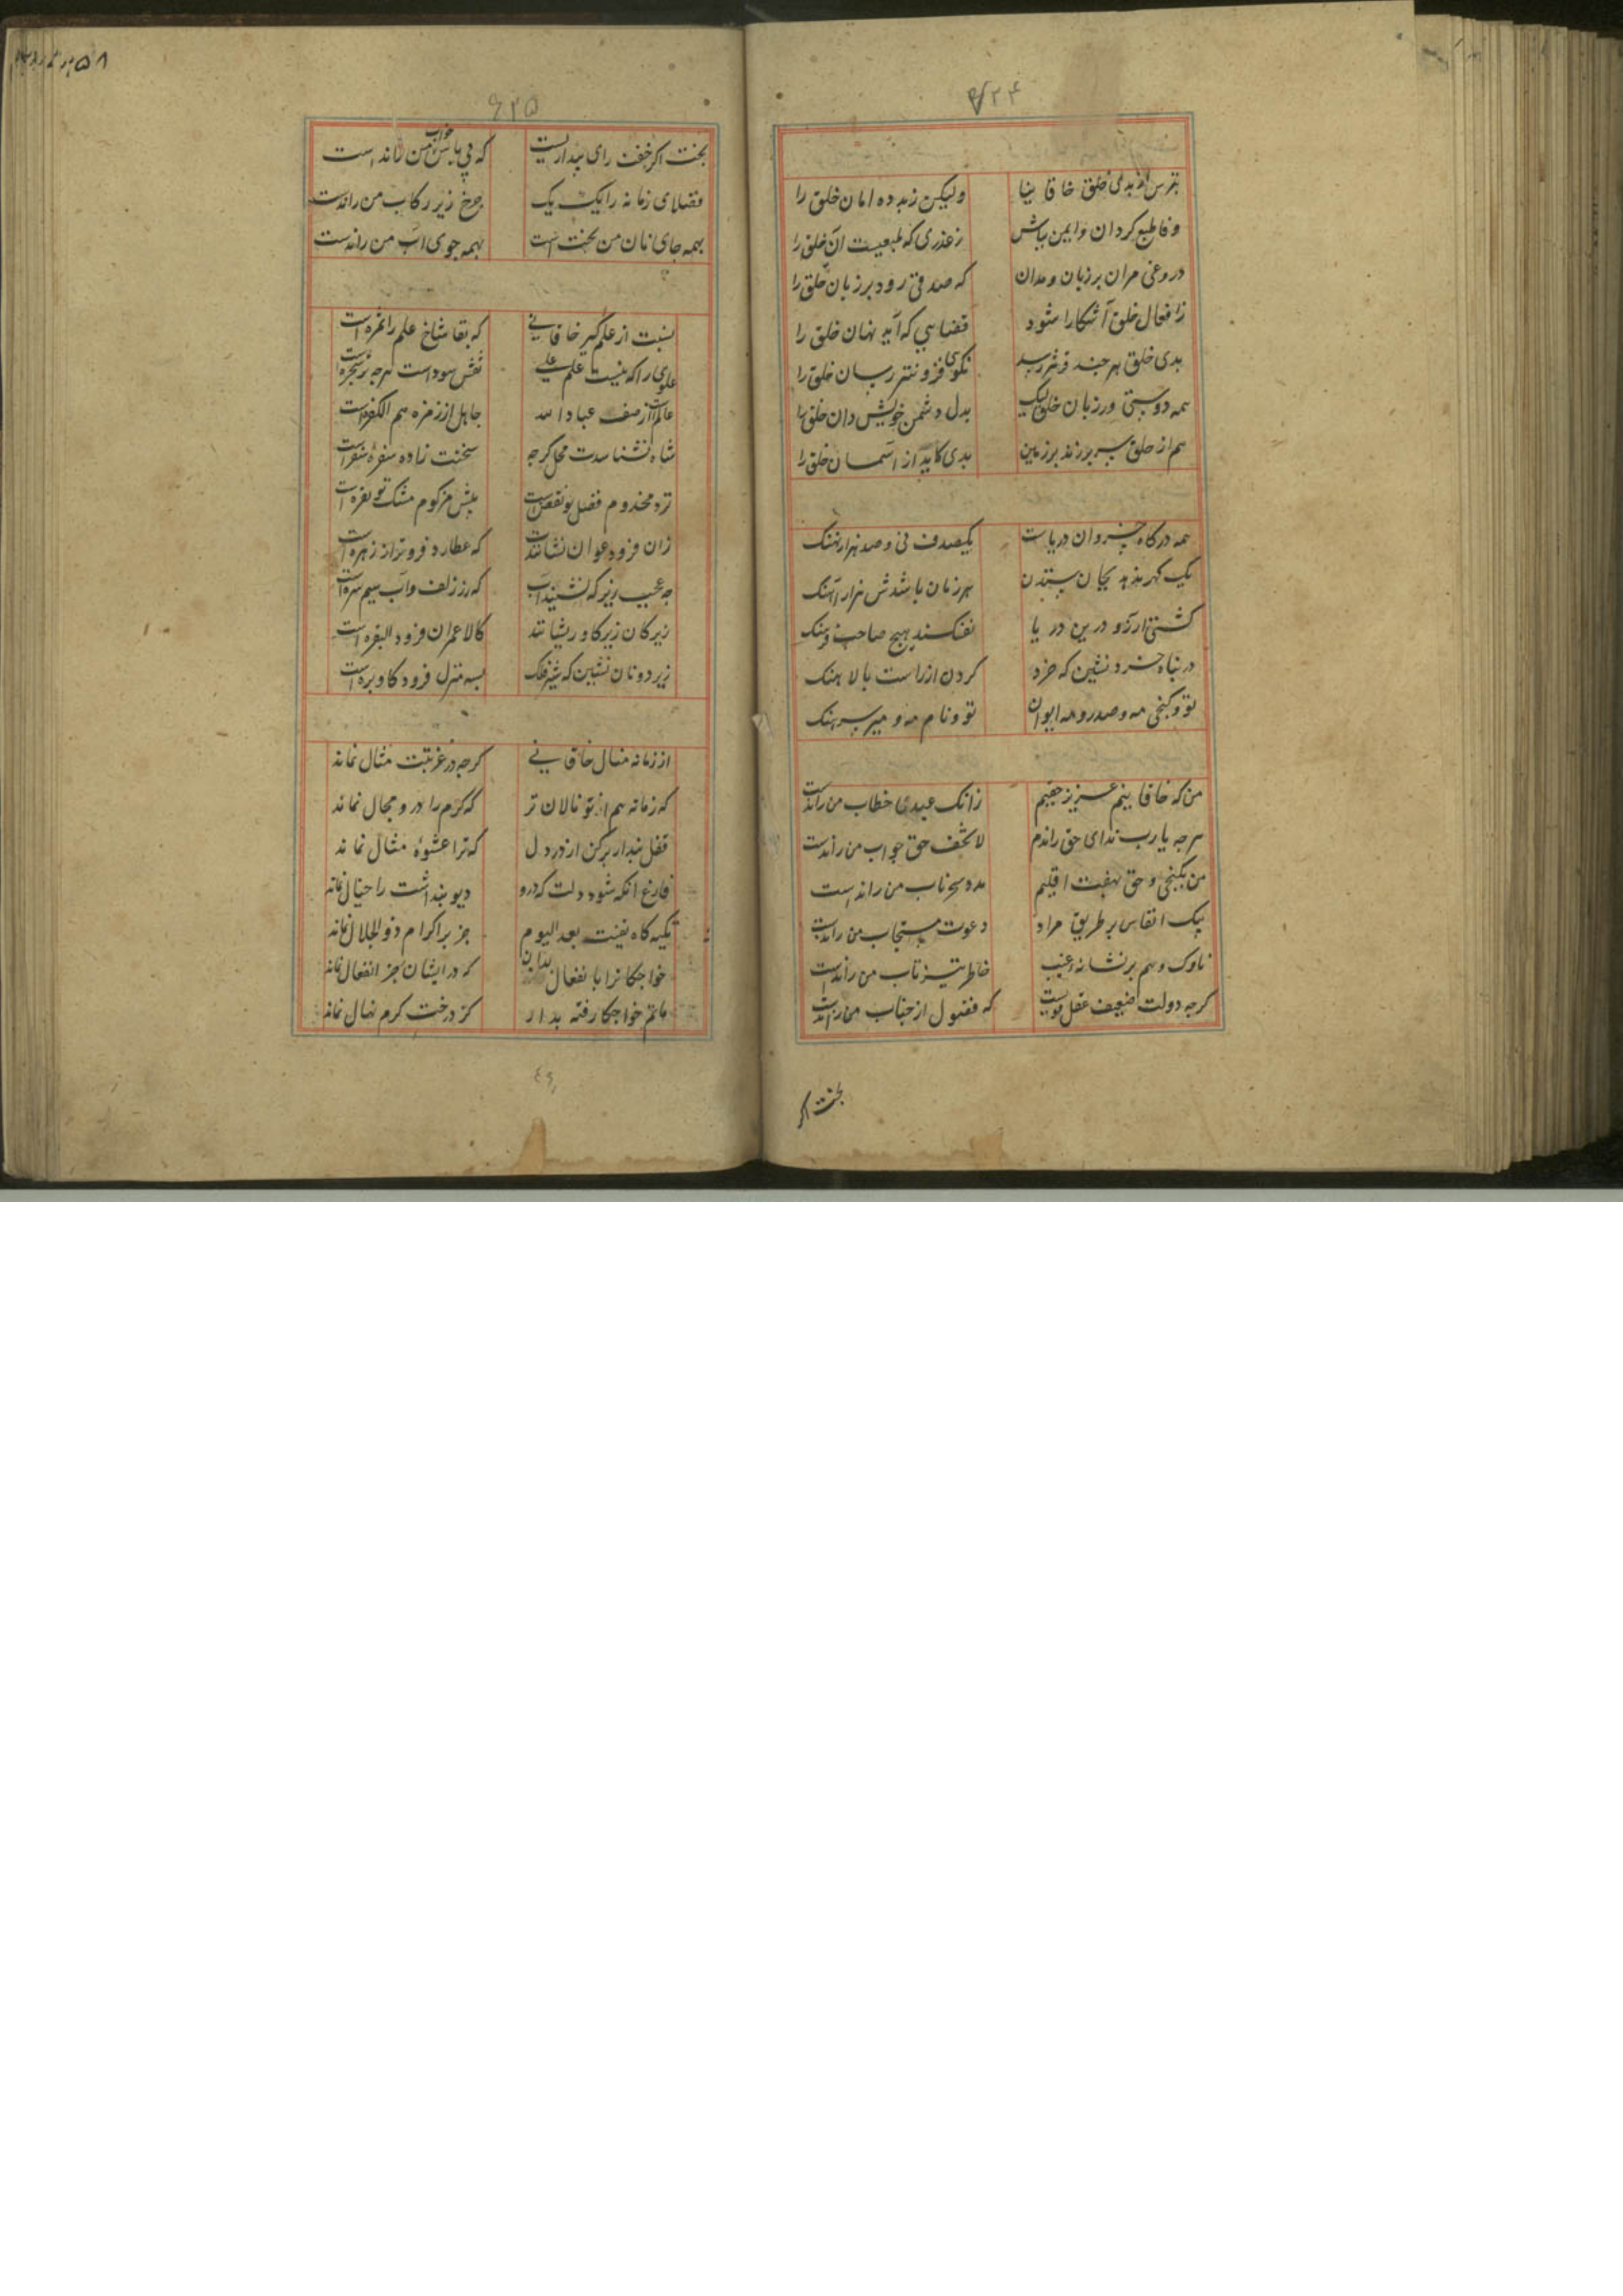 ۶۲۴
بترس از بدی خلق خاقانیا ولیکن زبد ده امان خلق را
وفا طبع کردان وایمن مباش زغدری که طبعیست آن خلق را
دروغی مران بر زبان ومدان که صدقی رود بر زبان خلق را
زافعال خلق آشکارا شود قضایی که آید نهان خلق را
بدی خلق هر جند نکوی فزونتر رسان خلق را
همه دوستی ورز با خلق لیک بدل دشمن خویش دان خلق را
هم از خلق سر بر زند بر زمین بدی کاید از آسمان خلق را
همه درکاه خسروان دریاست یکصدف نی وصد هزار نهنک
یک کهر ندهد بجان ستدن هر زمان باشدش هزار آهنک
کشتی آرزو درین دریا نفکند هیچ صاحب فرهنک
در پناه خرد نشین که خرد کردن ازراست بالاهنک
تو وکنجی مه وصدر ومه ایوان تو ونام مه ومیر سرهنک
من که خاقانیم عزیز حقم زانک عبدی خطاب من راندست
هرجه یارب ندای حق راندم لاتخف حق جواب من راندست
من بکنجی وحق بهفت اقلیم مدد سحرناب من راندست
پیک انفاس بر طریق مراد دعوت مستجاب من راندست
ناوک وهم بر نشانه غیب خاطر تیزتاب من راندست
کرجه دولت ضعیف عقل قویست که فضول از جناب من راندست
بخت اکر
۶۲۵
بخت اکر خفت رای بیدارست که پی پاس خواب من راندست
قضاهای زمانه را یک یک جرخ زیر رکاب من راندست
بهمه جای نان من بختست بهمه جوی آب من راندست
نسبت از علم کیر خاقانی که بقا شاخ علم را ثمره است
علوی را که نیست علم علی نقش سوداست هرجه بر شجره است
عالم از صف عباد الله جاهل از زمره هم الکفره است
شاه نشناسدت محل کرجه سخنت زاده سفره سفراست
نزد مخدوم فضل تو نقصست پیش مزکوم مشک تو بعره است
زان فرود عوان نشانندت که عطارد فروتر از زهره است
جه عجب زیر که نشیند آب که زر زلف وآب سیم سره است
زیرکان زیر کاو ریشانند کال عمران فرود البقره است
زیر دونان نشین که شیر فلک بسه منزل فرود کاو بره است
از زمانه منال خاقانی کرجه در غربتت منال نماند
که زمانه هم از تو نالان تر که کرم را درو مجال نماند
قفل پندار برکن از در دل که ترا عشوه مثال نماند
فارغ آنکه شود دلت که درو دیو پنداشت را خیال نماند
تکیه کاه نفیت بعد الیوم جز بر اکرام ذوالجلال نماند
خواجکانرا بانفعال بدان که در ایشان جز انفعال نماند
ماتم خواجکان رفته بدار کز درخت کرم نهال نماند